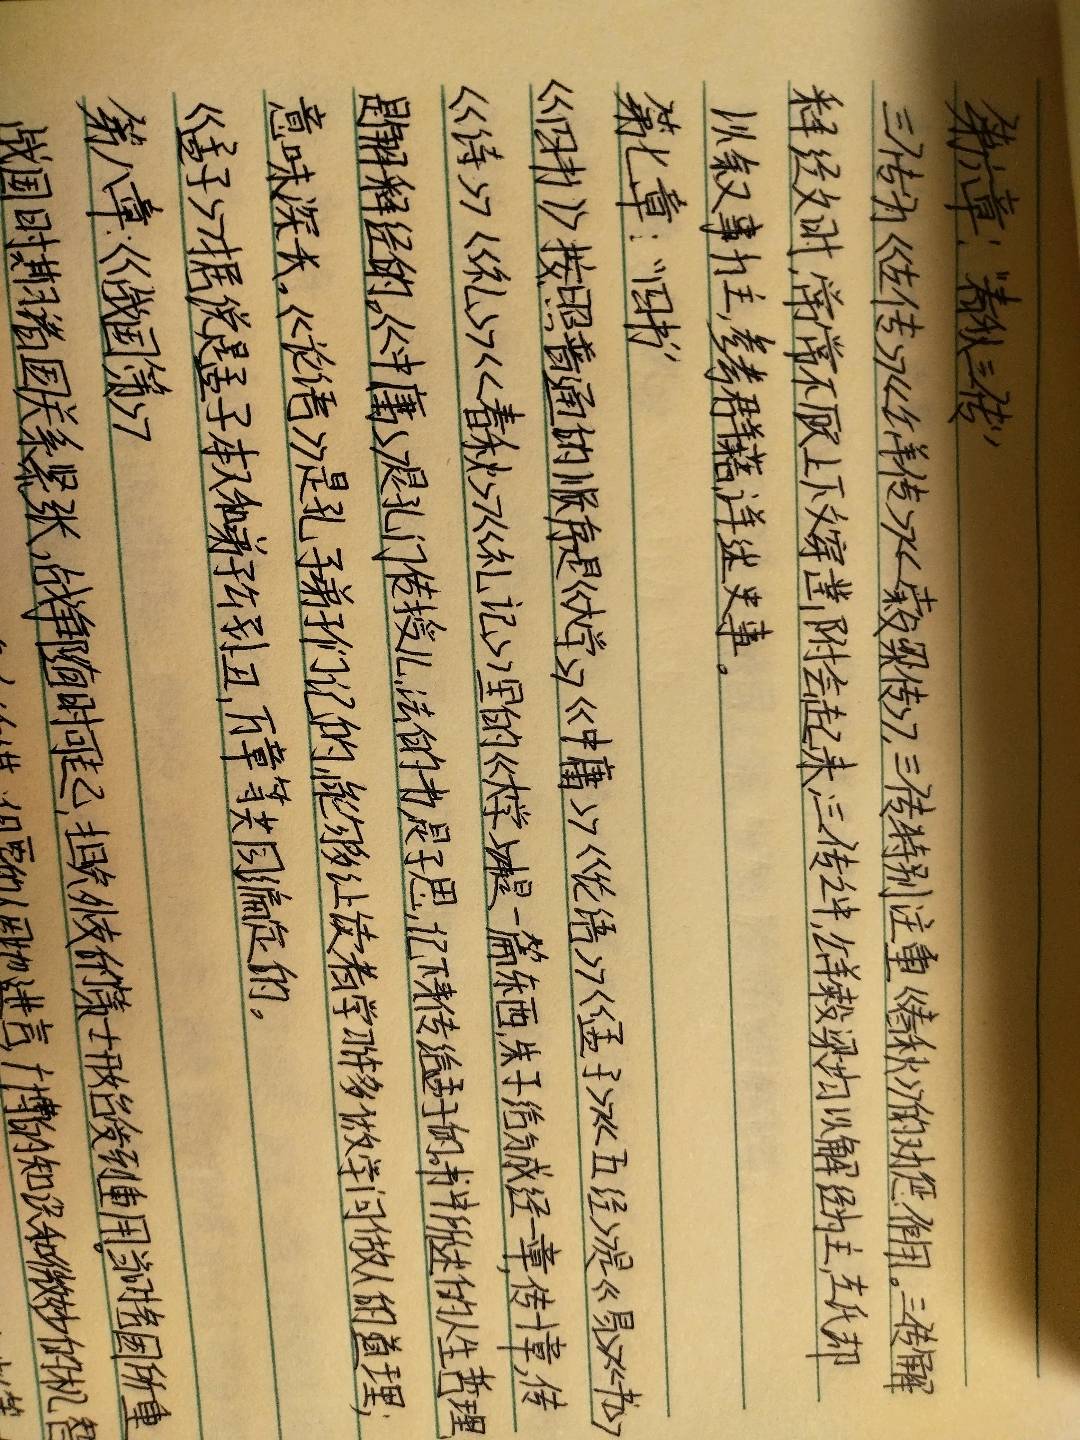 第六章："春秋三传"
三传为《左传》《公羊传》《穀梁传》，三传特别注重《春秋》的劝惩作用。三传解
释经文时，常常不顾上下文穿凿附会起来，三传之中，公羊穀梁均以解经为主，左氏却
以叙事为主，参考群籍，详述史事。
第七章："四书"
《四书》按照普通的顺序是《大学》《中庸》《论语》《孟子》《五经》是《易》《书》
《诗》《礼》《春秋》《礼记》里的《大学》本是一篇东西，朱子给分成经一章，传十章，传
是解释经的。《中庸》是孔门传授儿法的书，是子思记下来传给孟子的。书中所述的人生哲理
意味深长。《论语》是孔子弟子们记的，能够让读者学习许多做学问做人的道理；
《孟子》据说是孟子本人和弟子公孙丑，万章等共同编定的。
第八章：《战国策》
战国时期诸国关系紧张，战争随时可起，担负外交的策士形势后重用，当时诸国所重
的知识和微妙的机智